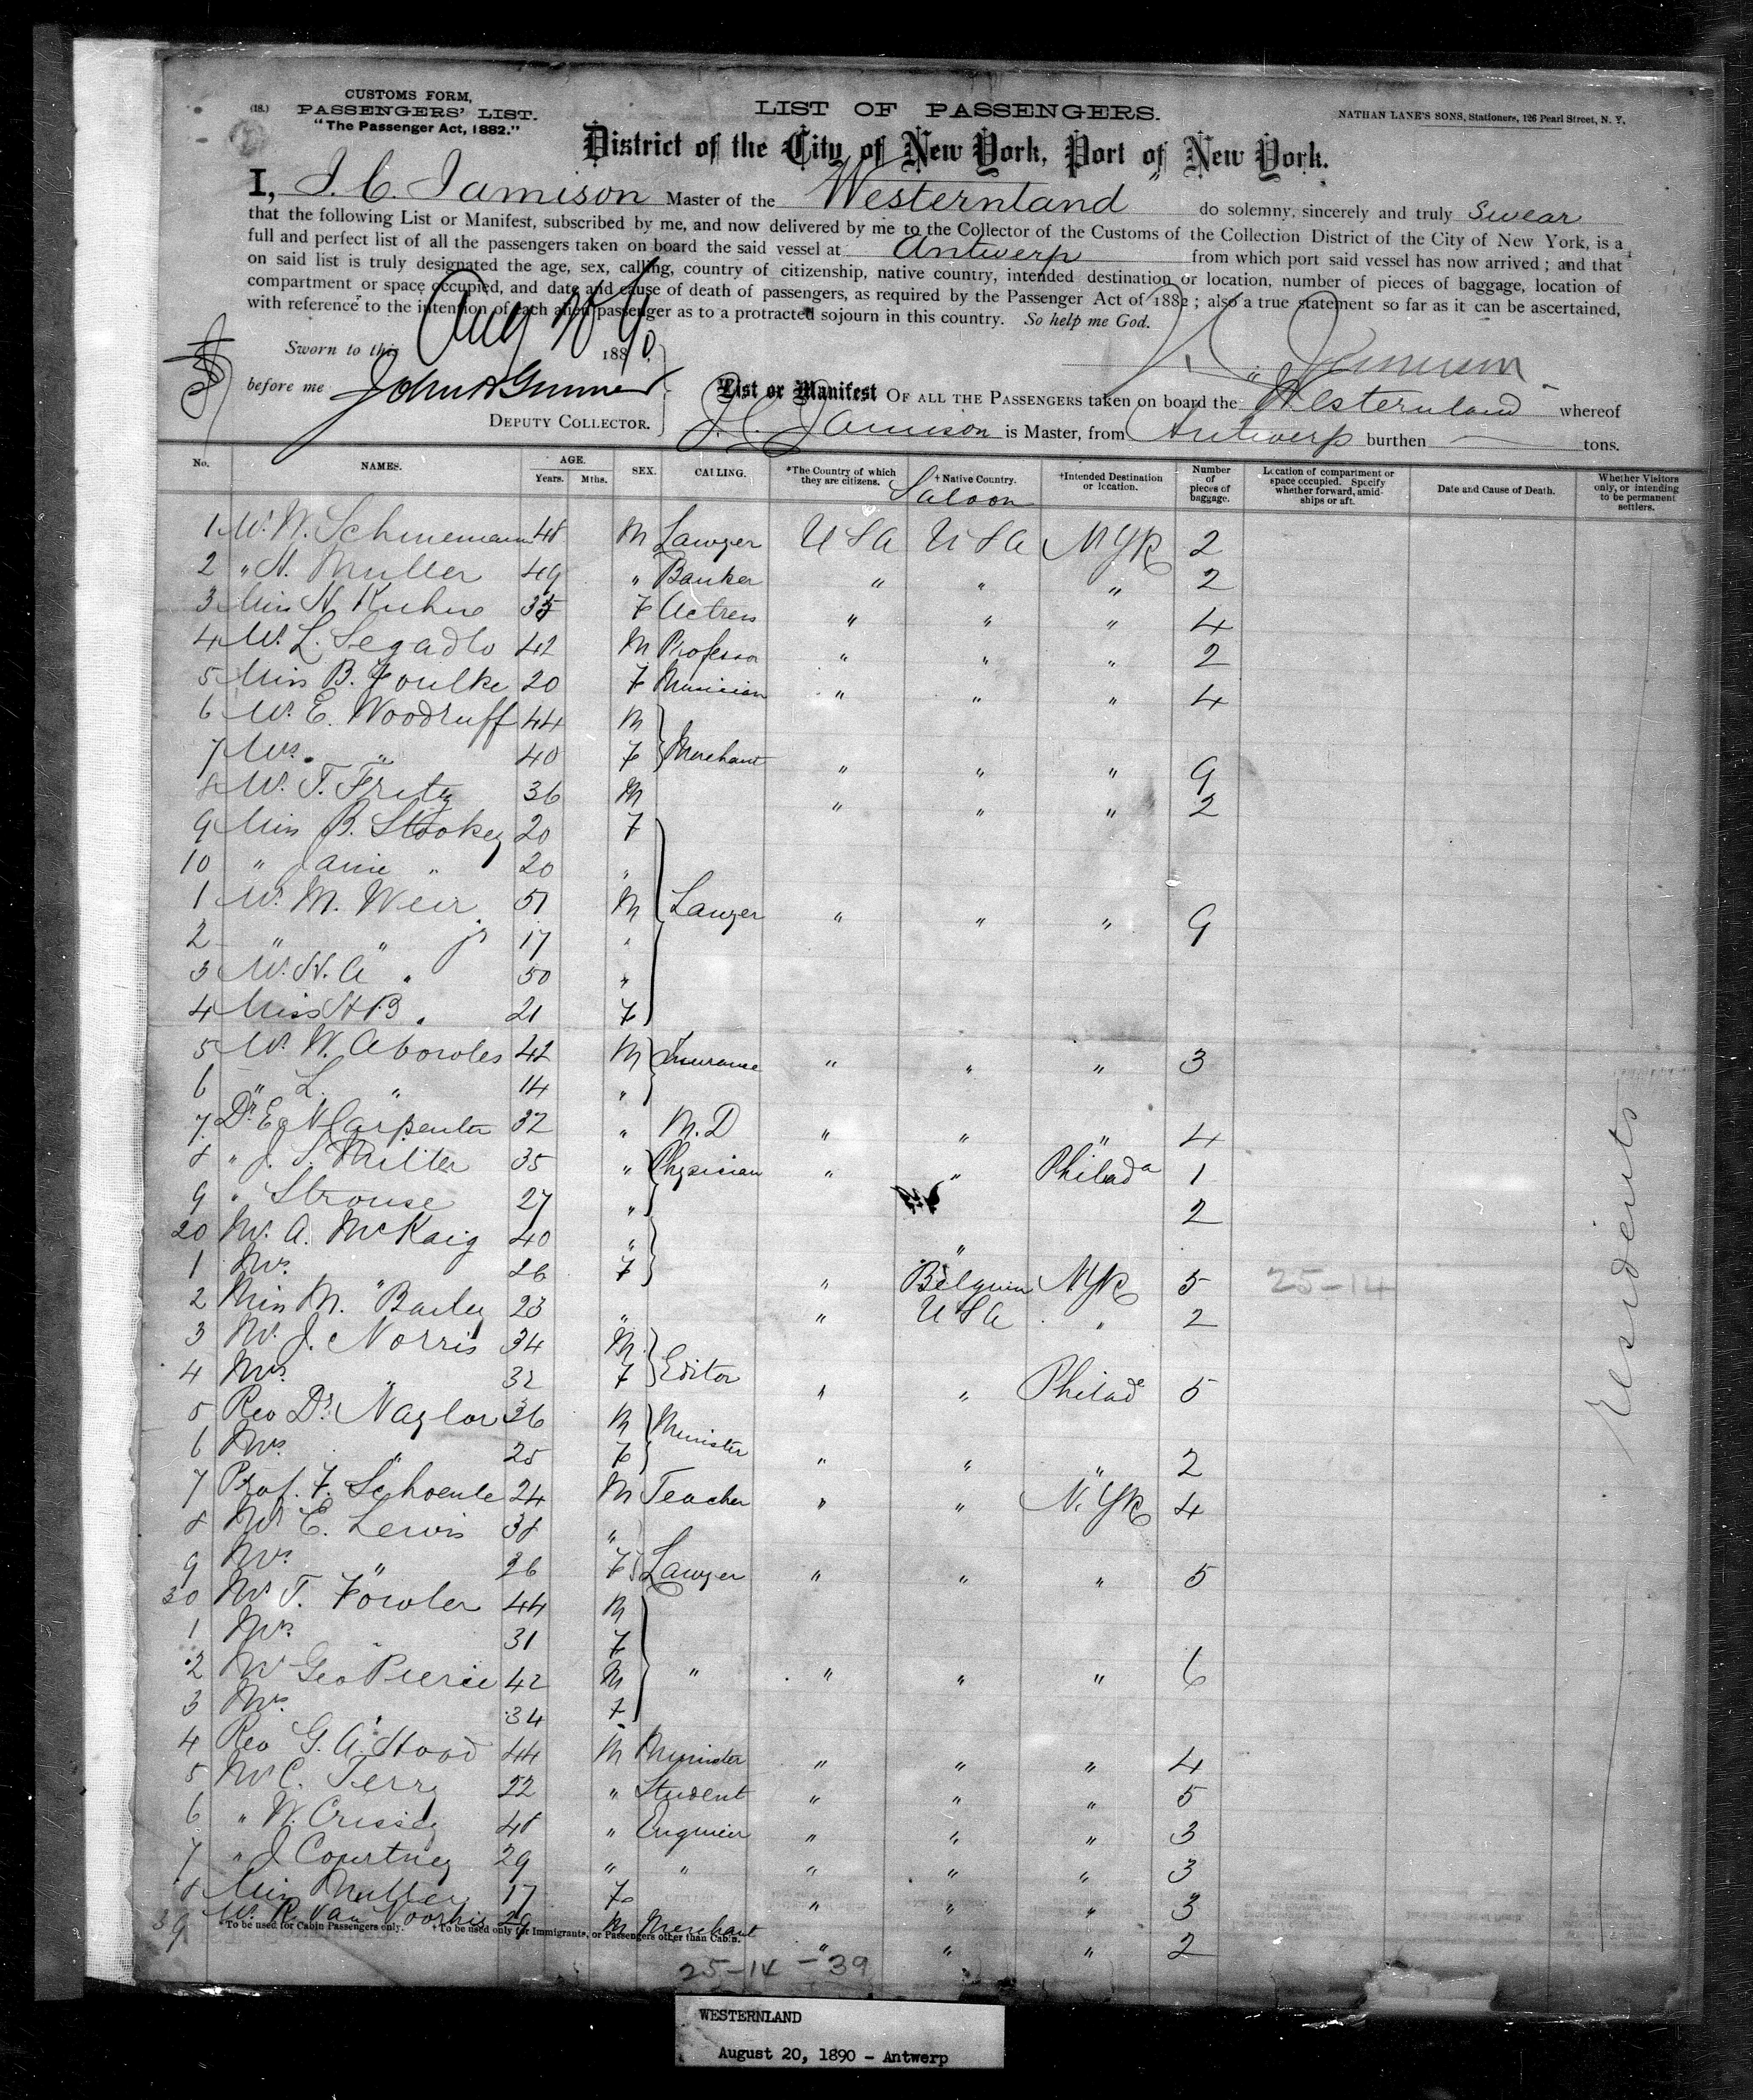 (18.)
CUSTOMS FORM,
PASSENGERS' LIST.
"The Passenger Act, 1882."
LIST OF PASSENGERS.
NATHAN LANE'S SONS, Stationers, 126 Pearl Street, N. Y.
District of the City of New York, Port of New York.
I, J. C. Jamison Master of the Westernland do solemny, sincerely and truly swear
that the following List or Manifest, subscribed by me, and now delivered by me to the Collector of the Customs of the Collection District of the City of New York, is a
full and perfect list of all the passengers taken on board the said vessel at Antwerp from which port said vessel has now arrived; and that
on said list is truly designated the age, sex, calling, country of citizenship, native country, intended destination or location, number of pieces of baggage, location of
compartment or space occupied, and date and cause of death of passengers, as required by the Passenger Act of 1882; also a true statement so far as it can be ascertained,
with reference to the intention of each alien passenger as to a protracted sojourn in this country. So help me God.
Sworn to this Aug 20 1890
J. C. Jamison
before me
DEPUTY COLLECTOR.
List or Manifest OF ALL THE PASSENGERS taken on board the " Westernland whereof
J. C. Jamison is Master, from Antwerp burthen — tons.
No. NAMES. AGE. Years. Mths. SEX. CALLING. *The Country of which they are citizens. †Native Country. †Intended Destination or location. Number of pieces of baggage. Location of compartment or space occupied. Specify whether forward, amidships or aft. Date and Cause of Death. Whether Visitors only, or intending to be permanent settlers.
Saloon
1 Mr. W. Schunemann 48 M Lawyer USA USA NYK 2
2 " H. Muller 49 " Banker " " " 2
3 Miss H. Kuhne 35 F Actress " " " 4
4 Mr. L. Segadlo 42 M Professor " " " 2
5 Miss B. Foulke 20 F Musician " " " 4
6 Mr. E. Woodruff 44 M
7 Mrs. " 40 F Merchant " " " 9
8 Mr. T. Fritz 36 M " " " 2
9 Miss B. Stookey 20 F
10 " Janie " 20 "
1 Mr. M. Weir 51 M Lawyer " " " 9
2 " " jr 17 "
3 Mr. H. A " 50 "
4 Miss H B " 21 F
5 Mr. W. Abowles 42 M Insurance " " " 3
6 " L. " 14 "
7 Dr. Eg N Carpenter 32 " M.D " " " 4
8 " J. S. Miller 35 " Physician " " Philada 1
9 " Strouse 27 " 2
20 Mr. A. McKaig 40 " "
1 Mrs. " 26 F " Belgium NYK 5 25-14
2 Miss M. Bailey 23 " " USA " 2
3 Mr. J. Norris 34 M
4 Mrs. " 32 F Editor " " Philade 5
5 Rev Dr. Naylor 36 M Minister
6 Mrs. " 25 F " " " 2
7 Prof. F. Schoenle 24 M Teacher " " N. YK 4
8 Mr. E. Lewis 38 "
9 Mrs. " 26 F Lawyer " " " 5
30 Mr. T. Fowler 44 M
1 Mrs. " 31 F
2 Mr Geo Pierce 42 M " " " " 6
3 Mrs. " 34 F
4 Rev G. A. Hood 44 M Minister " " " 4
5 Mr C. Terry 22 " Student " " " 5
6 " W. Crissey 48 " Engineer " " " 3
7 " J Courtney 29 " " " " " 3
8 Miss Muller 17 F " " " 3
39 Mr. R. Van Voorhis 29 M Merchant " " " 2
Residents
*To be used for Cabin Passengers only. †To be used only for Immigrants, or Passengers other than Cabin.
25-14 - 39
WESTERNLAND
August 20, 1890 - Antwerp